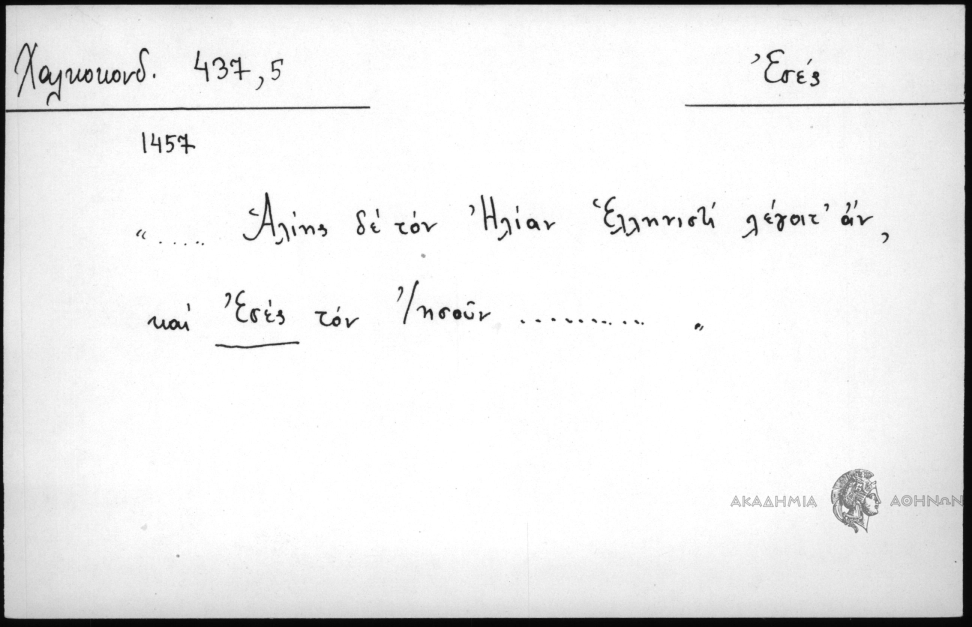 Χαλκοκονδ. 437,5
Ἐσές
1457
"..... Ἁλίης δέ τόν Ἠλίαν Ἑλληνιστί λέγοιτ' ἄν,
καί Ἐσές τόν Ἰησοῦν .......... "
ΑΚΑΔΗΜΙΑ ΑΘΗΝΩΝ